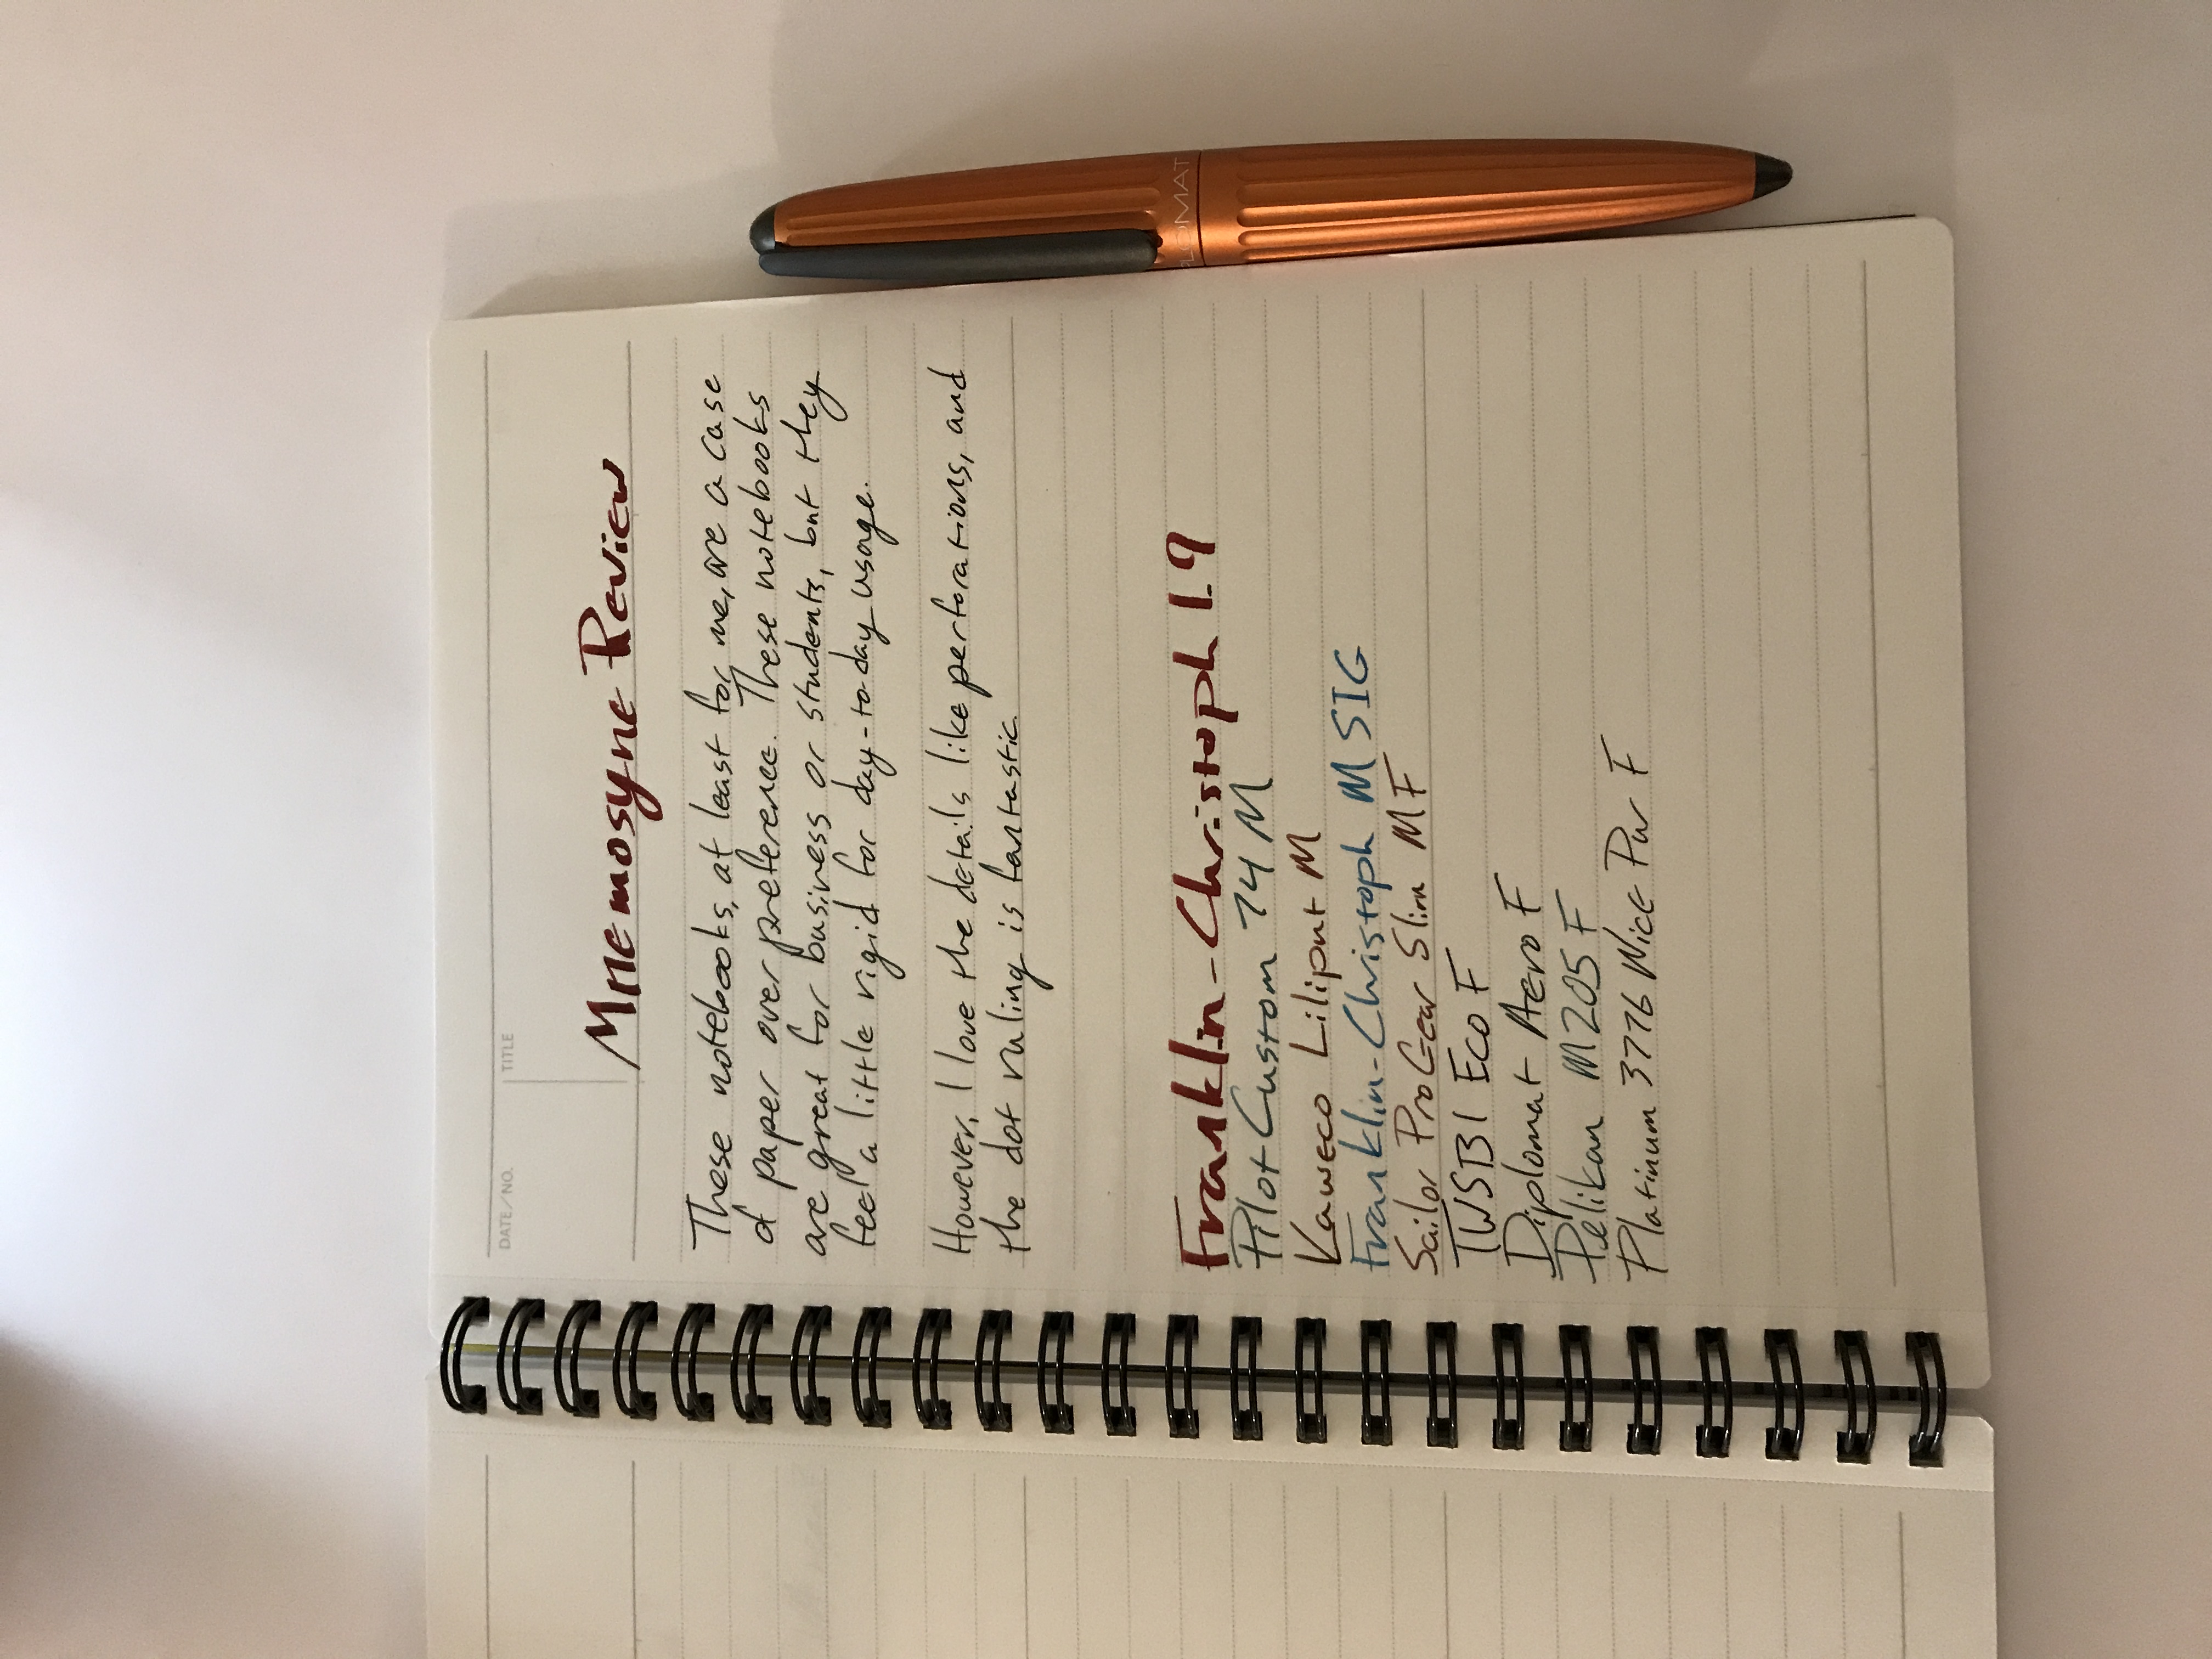 DATE/NO.
TITLE
Mnemosyne Review
These notebooks, at least for me, are a case
of paper over preference. These notebooks
are great for business or students, but they
feel a little rigid for day-to-day usage.
However, I love the details like perforations, and
the dot ruling is fantastic.
Franklin-Christoph 1.9
Pilot Custom 74 M
Kaweco Liliput M
Franklin-Christoph M SIG
Sailor Pro Gear Slim MF
TWSBI Eco F
Diplomat Aero F
Pelikan M205 F
Platinum 3776 Nice Pur F
PLOMAT